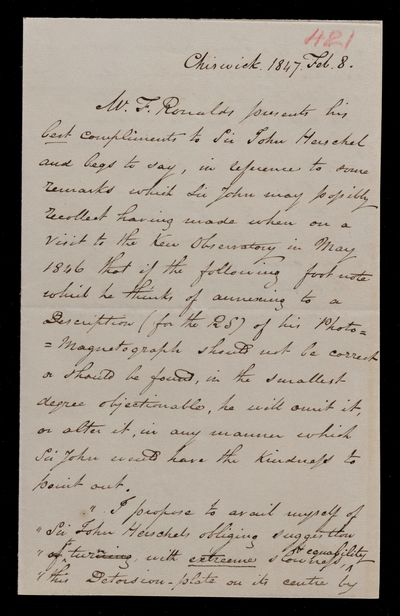 481
Chiswick. 1847. Feb. 8.
Mr. F. Ronalds presents his
best compliments to Sir John Herschel
and begs to say, in reference to some
remarks which Sir John may possibly
recollect having made when on a
visit to the Kew Observatory in May
1846 that if the following foot note
which he thinks of annexing to a
Description (for the RS) of his Photo=
=Magnetograph should not be correct
or should be found, in the smallest
degree objectionable, he will omit it,
or alter it, in any manner which
Sir John would have the kindness to
point out.
" I propose to avail myself of
" Sir John Herschels obliging suggestion
" of turning, with extreme slowness, & equability
" this Detorsion-plate on its centre by